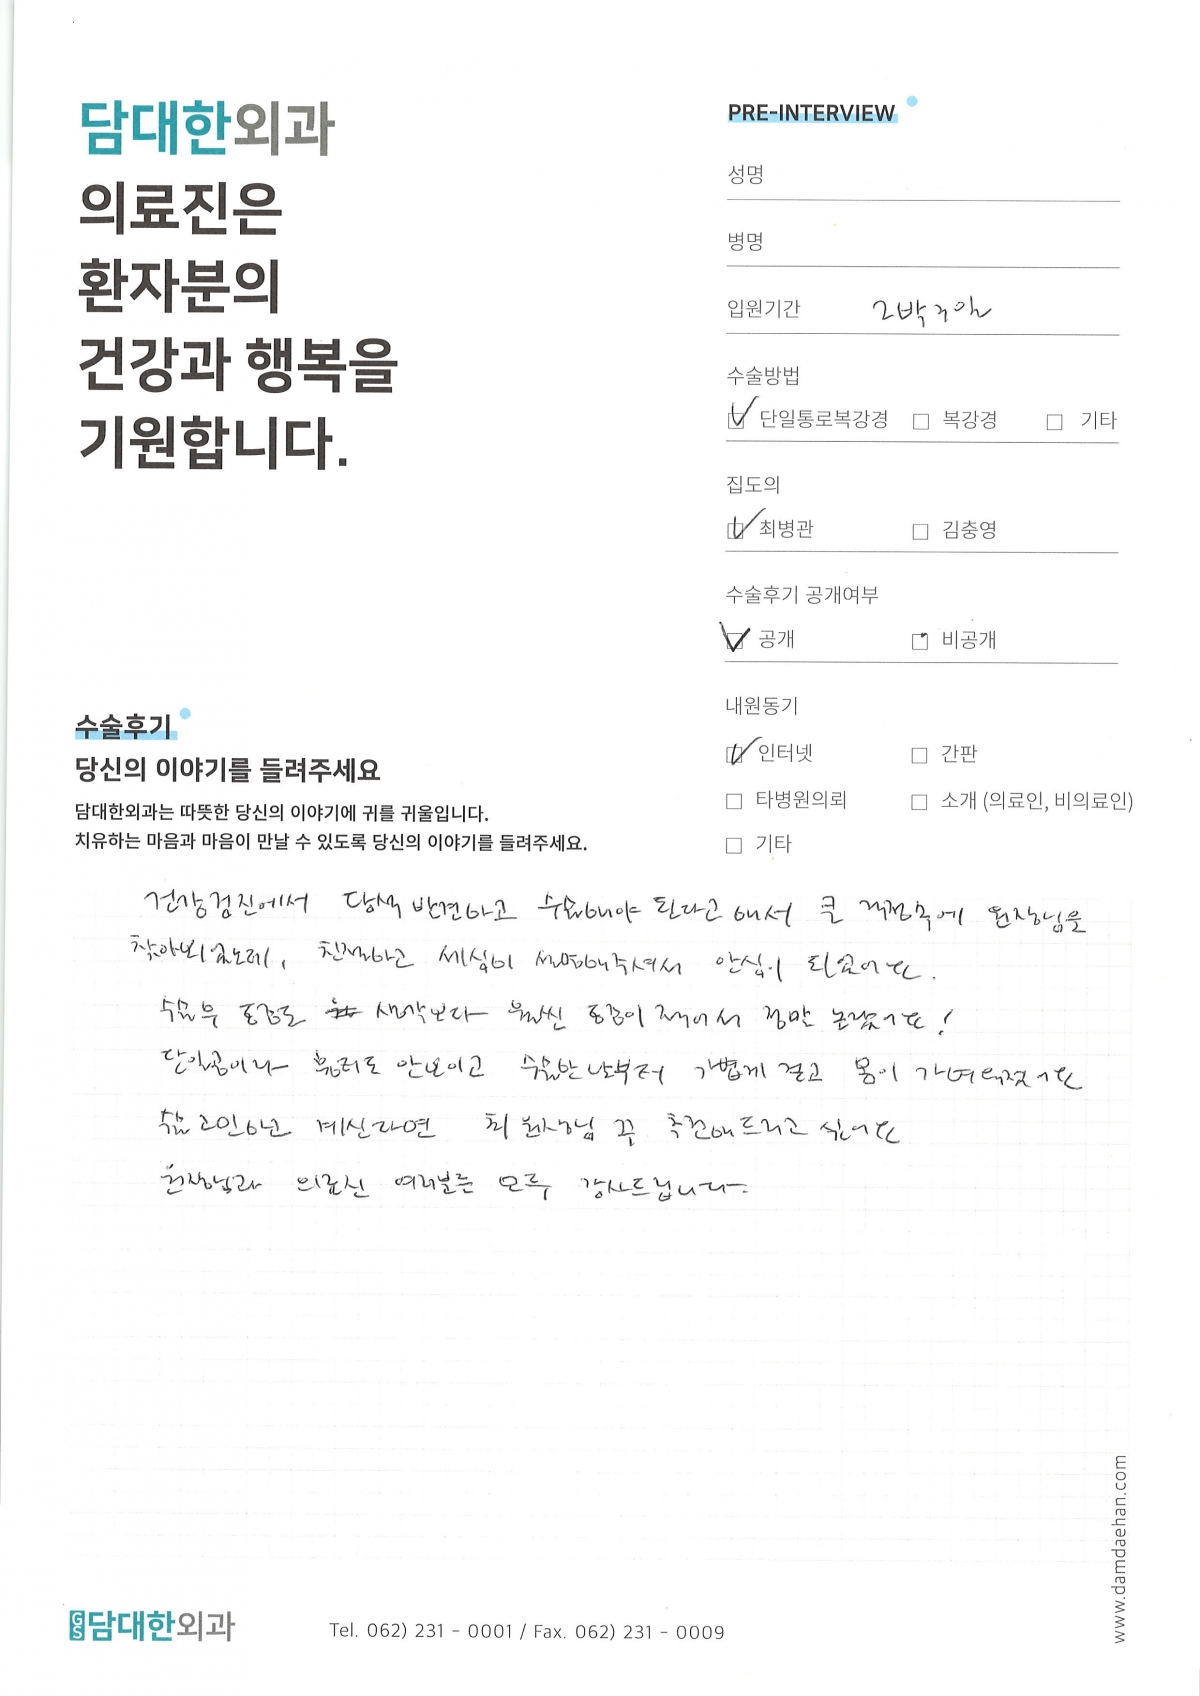 담대한외과
의료진은
환자분의
건강과 행복을
기원합니다.
PRE-INTERVIEW
성명
병명
입원기간 2박3일
수술방법
단일통로복강경 복강경 기타
집도의
최병관 김충영
수술후기 공개여부
공개 비공개
내원동기
인터넷 간판
타병원의뢰 소개 (의료인, 비의료인)
기타
수술후기
당신의 이야기를 들려주세요
담대한외과는 따뜻한 당신의 이야기에 귀를 귀울입니다.
치유하는 마음과 마음이 만날 수 있도록 당신의 이야기를 들려주세요.
건강검진에서 담석 발견하고 수술해야 된다고 해서 큰 걱정속에 원장님을
찾아뵈었는데, 친절하고 세심히 설명해주셔서 안심이 되었어요.
수술후 통증도 생각보다 훨씬 통증이 적어서 정말 놀랐어요!
단일공이라 흉터도 안보이고 수술한 날부터 가볍게 걷고 몸이 가벼워졌어요
수술 고민하는 계신다면 최 원장님 꼭 추천해드리고 싶어요
원장님과 의료진 여러분들 모두 감사드립니다.
GS 담대한외과
Tel. 062) 231 - 0001 / Fax. 062) 231 - 0009
www.damdaehan.com